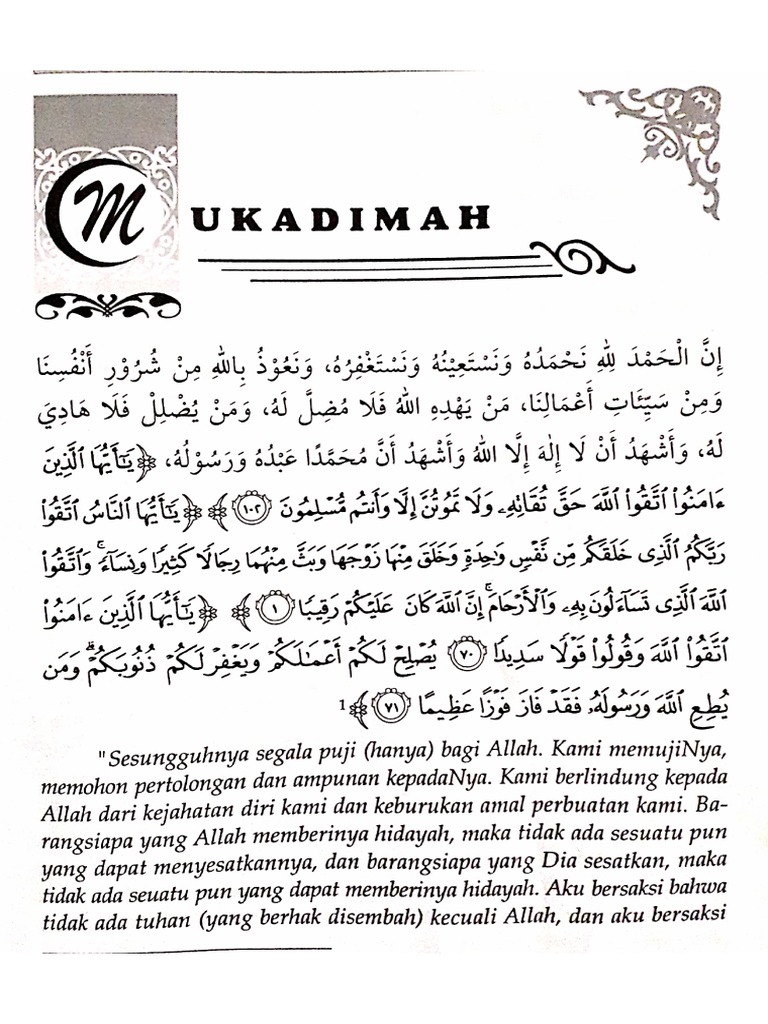 MUKADIMAH
إِنَّ الْحَمْدَ لِلهِ نَحْمَدُهُ وَنَسْتَعِيْنُهُ وَنَسْتَغْفِرُهُ، وَنَعُوْذُ بِاللهِ مِنْ شُرُوْرِ أَنْفُسِنَا
وَمِنْ سَيِّئَاتِ أَعْمَالِنَا، مَنْ يَهْدِهِ اللهُ فَلَا مُضِلَّ لَهُ، وَمَنْ يُضْلِلْ فَلَا هَادِيَ
لَهُ، وَأَشْهَدُ أَنْ لَا إِلٰهَ إِلَّا اللهُ وَأَشْهَدُ أَنَّ مُحَمَّدًا عَبْدُهُ وَرَسُوْلُهُ، ﴿يَٰٓأَيُّهَا الَّذِينَ
ءَامَنُوا۟ ٱتَّقُوا۟ ٱللَّهَ حَقَّ تُقَاتِهِۦ وَلَا تَمُوتُنَّ إِلَّا وَأَنتُم مُّسْلِمُونَ ١٠٢﴾ ﴿يَٰٓأَيُّهَا النَّاسُ ٱتَّقُوا۟
رَبَّكُمُ ٱلَّذِى خَلَقَكُم مِّن نَّفْسٍ وَٰحِدَةٍ وَخَلَقَ مِنْهَا زَوْجَهَا وَبَثَّ مِنْهُمَا رِجَالًا كَثِيرًا وَنِسَآءً ۚ وَٱتَّقُوا۟
ٱللَّهَ ٱلَّذِى تَسَآءَلُونَ بِهِۦ وَٱلْأَرْحَامَ ۚ إِنَّ ٱللَّهَ كَانَ عَلَيْكُمْ رَقِيبًا ١﴾ ﴿يَٰٓأَيُّهَا الَّذِينَ ءَامَنُوا۟
ٱتَّقُوا۟ ٱللَّهَ وَقُولُوا۟ قَوْلًا سَدِيدًا ٧٠ يُصْلِحْ لَكُمْ أَعْمَٰلَكُمْ وَيَغْفِرْ لَكُمْ ذُنُوبَكُمْ ۗ وَمَن
يُطِعِ ٱللَّهَ وَرَسُولَهُۥ فَقَدْ فَازَ فَوْزًا عَظِيمًا ٧١﴾ 1
"Sesungguhnya segala puji (hanya) bagi Allah. Kami memujiNya,
memohon pertolongan dan ampunan kepadaNya. Kami berlindung kepada
Allah dari kejahatan diri kami dan keburukan amal perbuatan kami. Ba-
rangsiapa yang Allah memberinya hidayah, maka tidak ada sesuatu pun
yang dapat menyesatkannya, dan barangsiapa yang Dia sesatkan, maka
tidak ada seuatu pun yang dapat memberinya hidayah. Aku bersaksi bahwa
tidak ada tuhan (yang berhak disembah) kecuali Allah, dan aku bersaksi